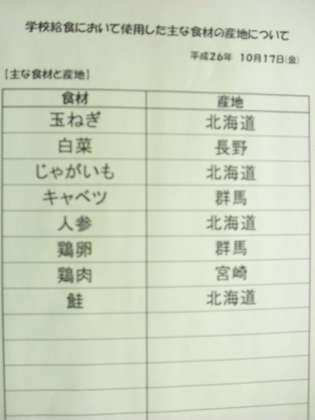 学校給食において使用した主な食材の産地について
平成26年 10月17日(金)
[主な食材と産地]
食材 産地
玉ねぎ 北海道
白菜 長野
じゃがいも 北海道
キャベツ 群馬
人参 北海道
鶏卵 群馬
鶏肉 宮崎
鮭 北海道